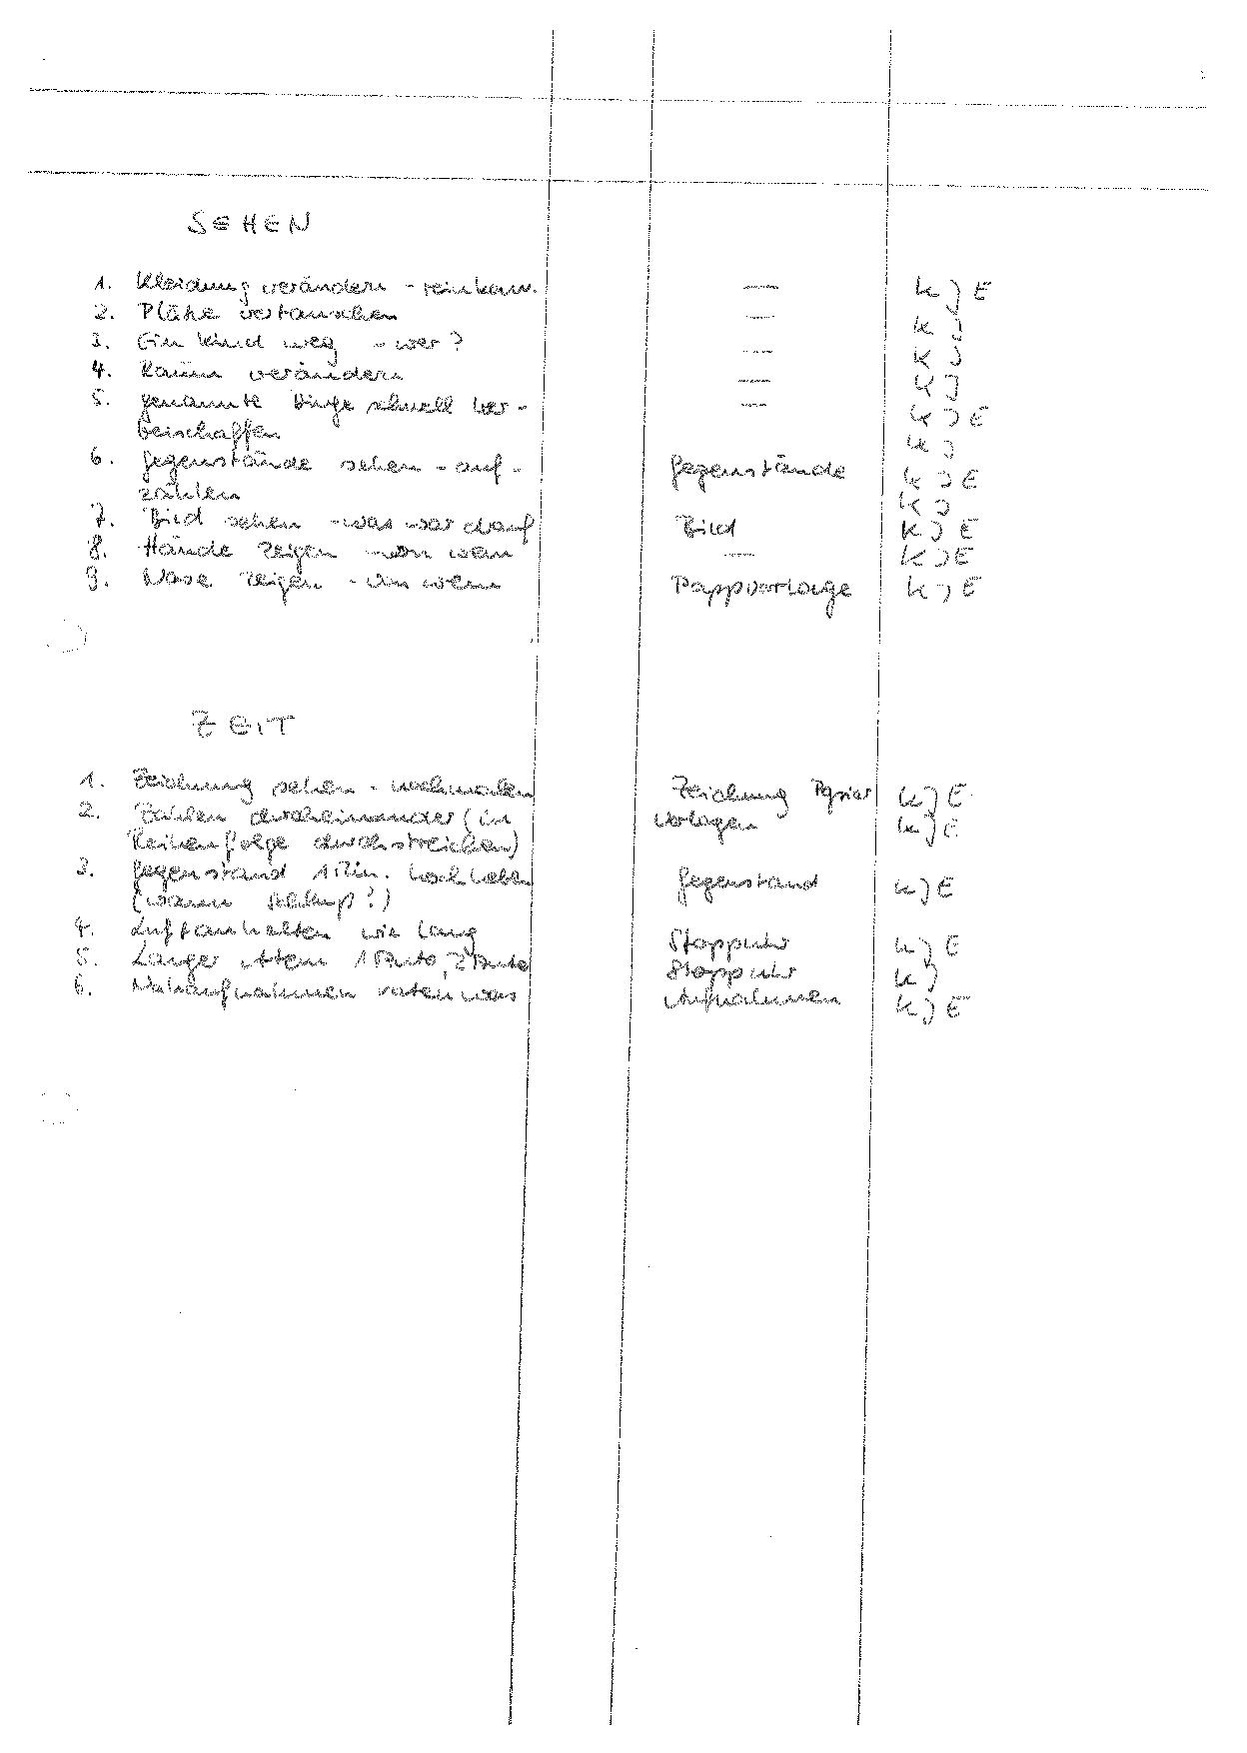 SEHEN
1. Kleidung verändern - reinkom. — K J E
2. Plätze vertauschen — K J
3. Ein Kind weg - wer? — K J
4. Raum verändern — K J
5. genannte Dinge schnell her- — K J E
beischaffen K J
6. Gegenstände sehen - auf- Gegenstände K J E
zählen K J
7. Bild sehen - was war drauf Bild K J E
8. Hände zeigen - von wem — K J E
9. Nase zeigen - von wem Pappvorlage K J E
ZEIT
1. Zeichnung sehen - nachmalen Zeichnung Papier K J E
2. Zahlen durcheinander (in Vorlagen K J E
Reihenfolge durchstreichen)
3. Gegenstand 1 Min. hochheben Gegenstand K J E
(wann Schluß?)
4. Luftanhalten wie lang Stoppuhr K J E
5. Langer Atem Stoppuhr K J
6. Nahaufnahmen raten was Aufnahmen K J E